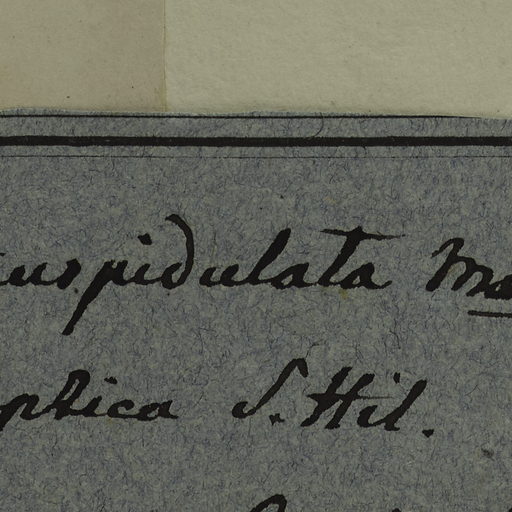 cuspidulata Ma
ptica S. Hil.